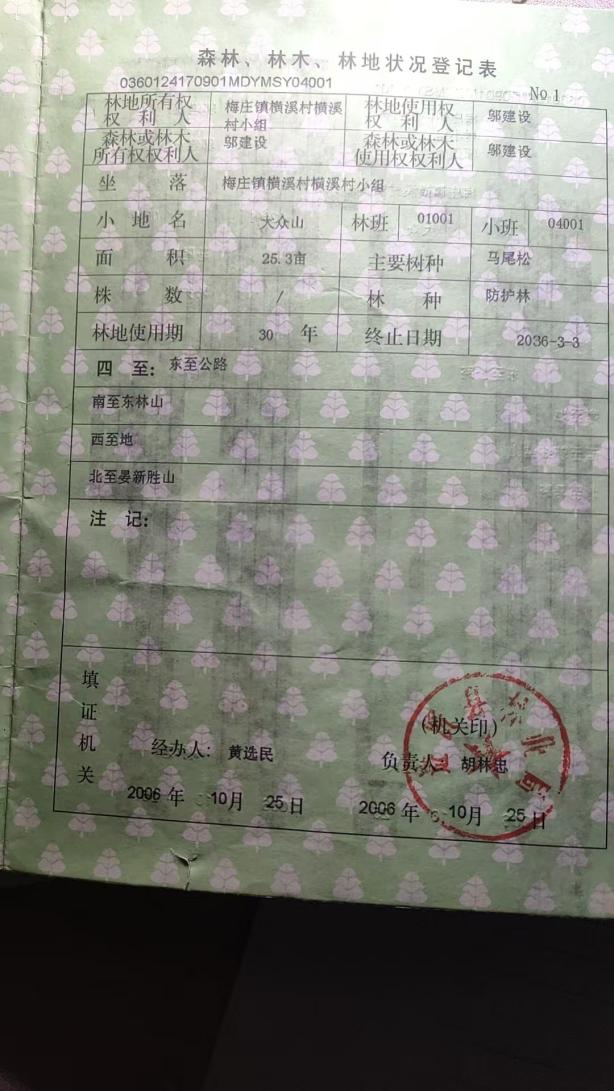 森林、林木、林地状况登记表
0360124170901MDYMSY04001
№ 1
林地所有权权利人 梅庄镇横溪村横溪村小组 林地使用权权利人 邬建设
森林或林木所有权权利人 邬建设 森林或林木使用权权利人 邬建设
坐落 梅庄镇横溪村横溪村小组
小地名 大众山 林班 01001 小班 04001
面积 25.3亩 主要树种 马尾松
株数 / 林种 防护林
林地使用期 30 年 终止日期 2036-3-3
四至：东至公路
南至东林山
西至地
北至晏新胜山
注记：
填证机关
（机关印）
经办人：黄选民 负责人 胡林忠
2006 年 10月 25日 2006 年 10月 25日